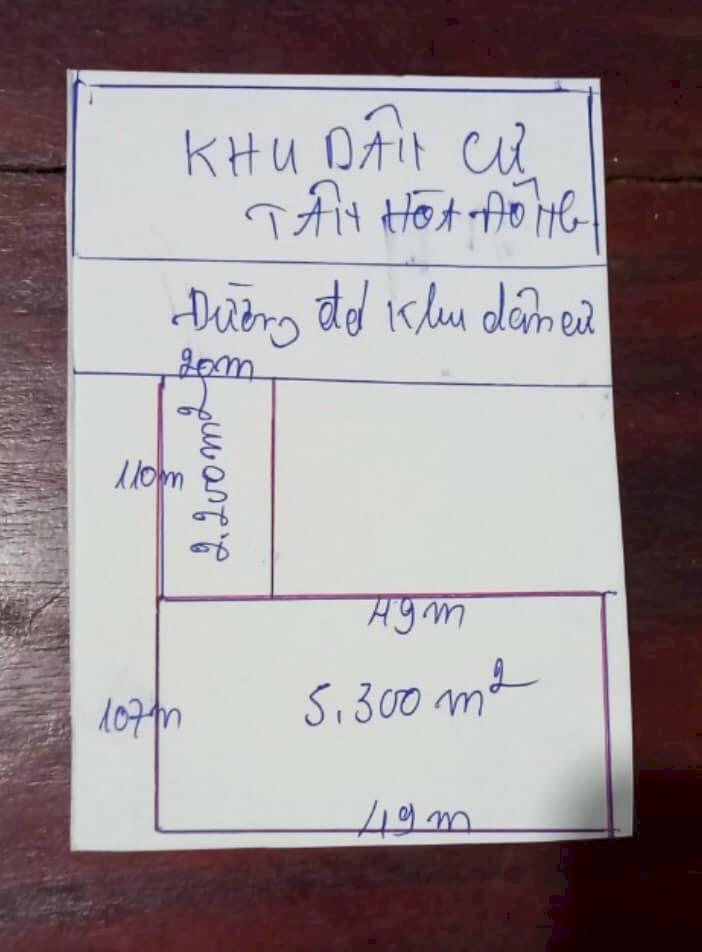 KHU DÂN CƯ
TÂN HÒA ĐÔNG
Đường đd Khu dân cư
20m
110m
2.200m²
49m
5.300 m²
107m
49m